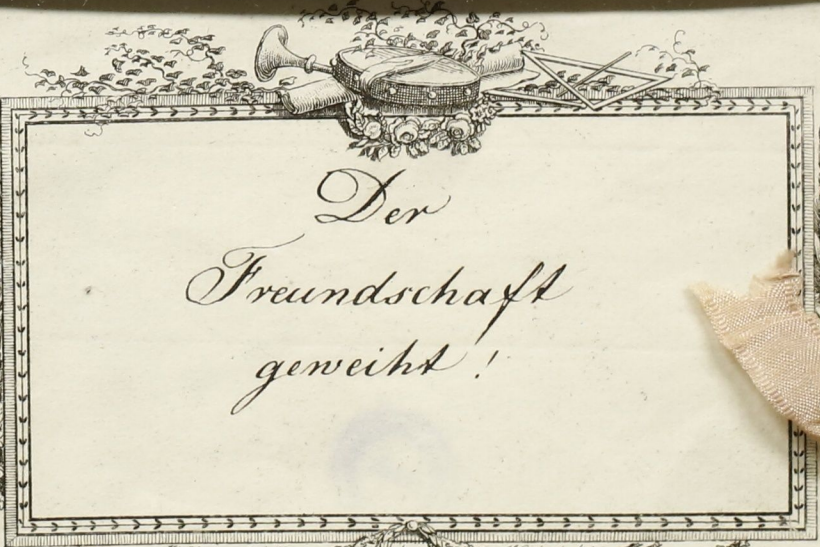 Der
Freundschaft
geweiht !